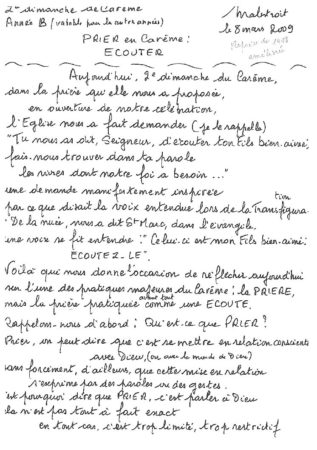 2e dimanche de Carême
Année B (valable pour les autres années)
Malestroit
le 8 mars 2009
Reprise de 1998
améliorée
PRIER en Carême :
ECOUTER
Aujourd'hui, 2e dimanche du Carême,
dans la prière qu'elle nous a proposée,
en ouverture de notre célébration,
l'Eglise nous a fait demander (je le rappelle)
"Tu nous as dit, Seigneur, d'écouter ton Fils bien-aimé ;
fais-nous trouver dans ta parole
les vivres dont notre foi a besoin..."
une demande manifestement inspirée
par ce que disait la voix entendue lors de la Transfigura
tion
"De la nuée, nous a dit St Marc, dans l'évangile,
une voix se fit entendre : "Celui-ci est mon Fils bien-aimé :
ECOUTEZ-LE".
Voilà qui nous donne l'occasion de réfléchir aujourd'hui
sur l'une des pratiques majeures du Carême : la PRIERE,
avant tout
mais la prière pratiquée comme une ECOUTE.
Rappelons-nous d'abord : Qu'est-ce que PRIER ?
Prier, on peut dire que c'est se mettre en relation consciente
avec Dieu, (ou avec le monde de Dieu)
sans forcément, d'ailleurs, que cette mise en relation
s'exprime par des paroles ou des gestes.
est pourquoi dire que PRIER, c'est parler à Dieu
la n'est pas tout à fait exact
en tout cas, c'est trop limité, trop restrictif